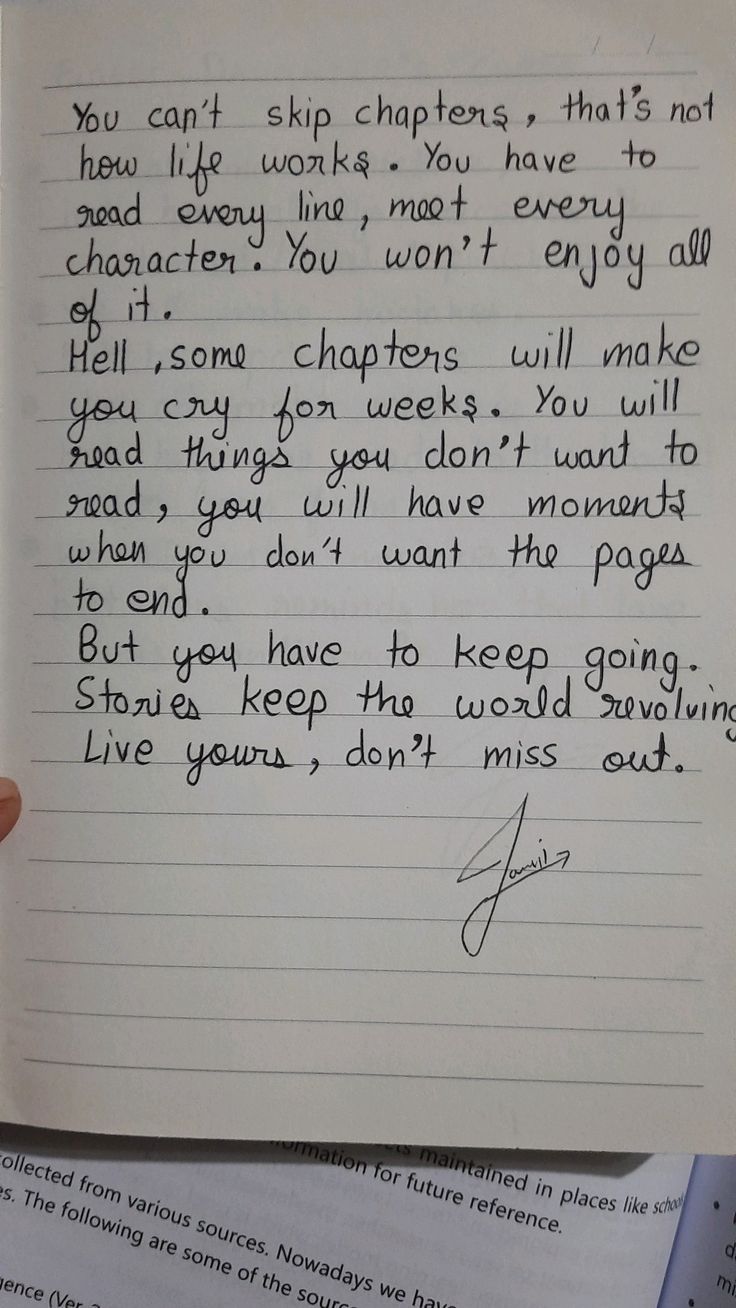 You can't skip chapters, that's not
how life works. You have to
read every line, meet every
character. You won't enjoy all
of it.
Hell, some chapters will make
you cry for weeks. You will
read things you don't want to
read, you will have moments
when you don't want the pages
to end.
But you have to keep going.
Stories keep the world revolving
Live yours, don't miss out.
maintained in places like school
formation for future reference.
ollected from various sources. Nowadays we have
es. The following are some of the sour
gence (Ver